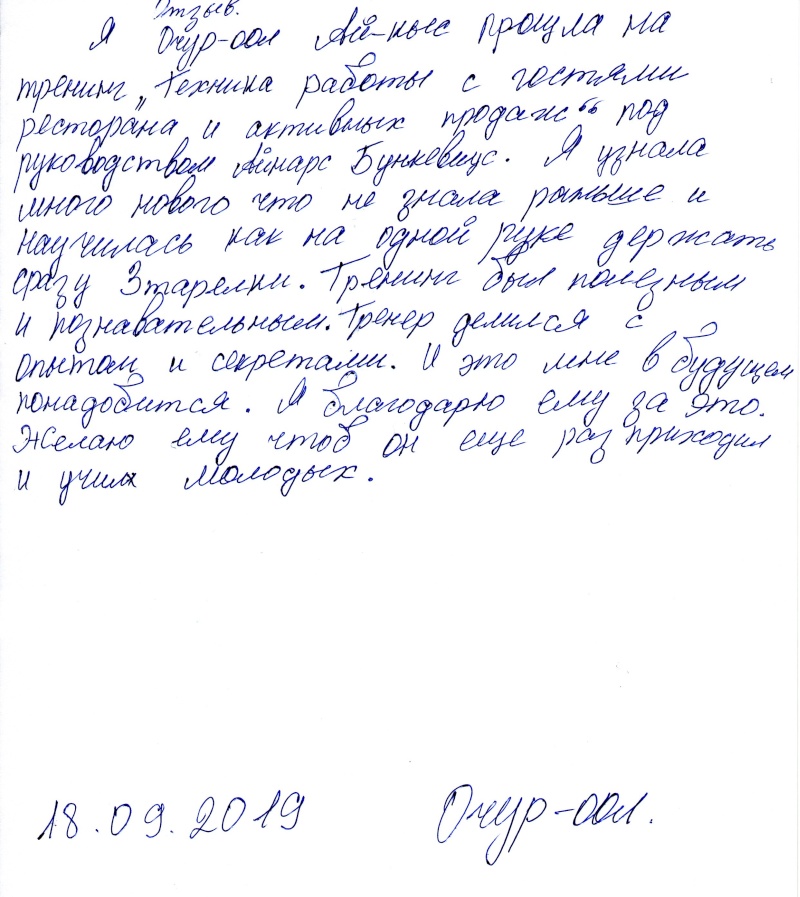 Отзыв.
Я Очур-оол Ай-кыс прошла на
тренинг „Техника работы с гостями
ресторана и активных продаж“ под
руководством Айнарс Бункевицс. Я узнала
много нового что не знала раньше и
научилась как на одной руке держать
сразу 3тарелки. Тренинг был полезным
и познавательным. Тренер делился с
опытом и секретами. И это мне в будущем
понадобится. Я благодарю ему за это.
Желаю ему чтоб он еще раз приходил
и учил молодых.
18.09.2019 Очур-оол.